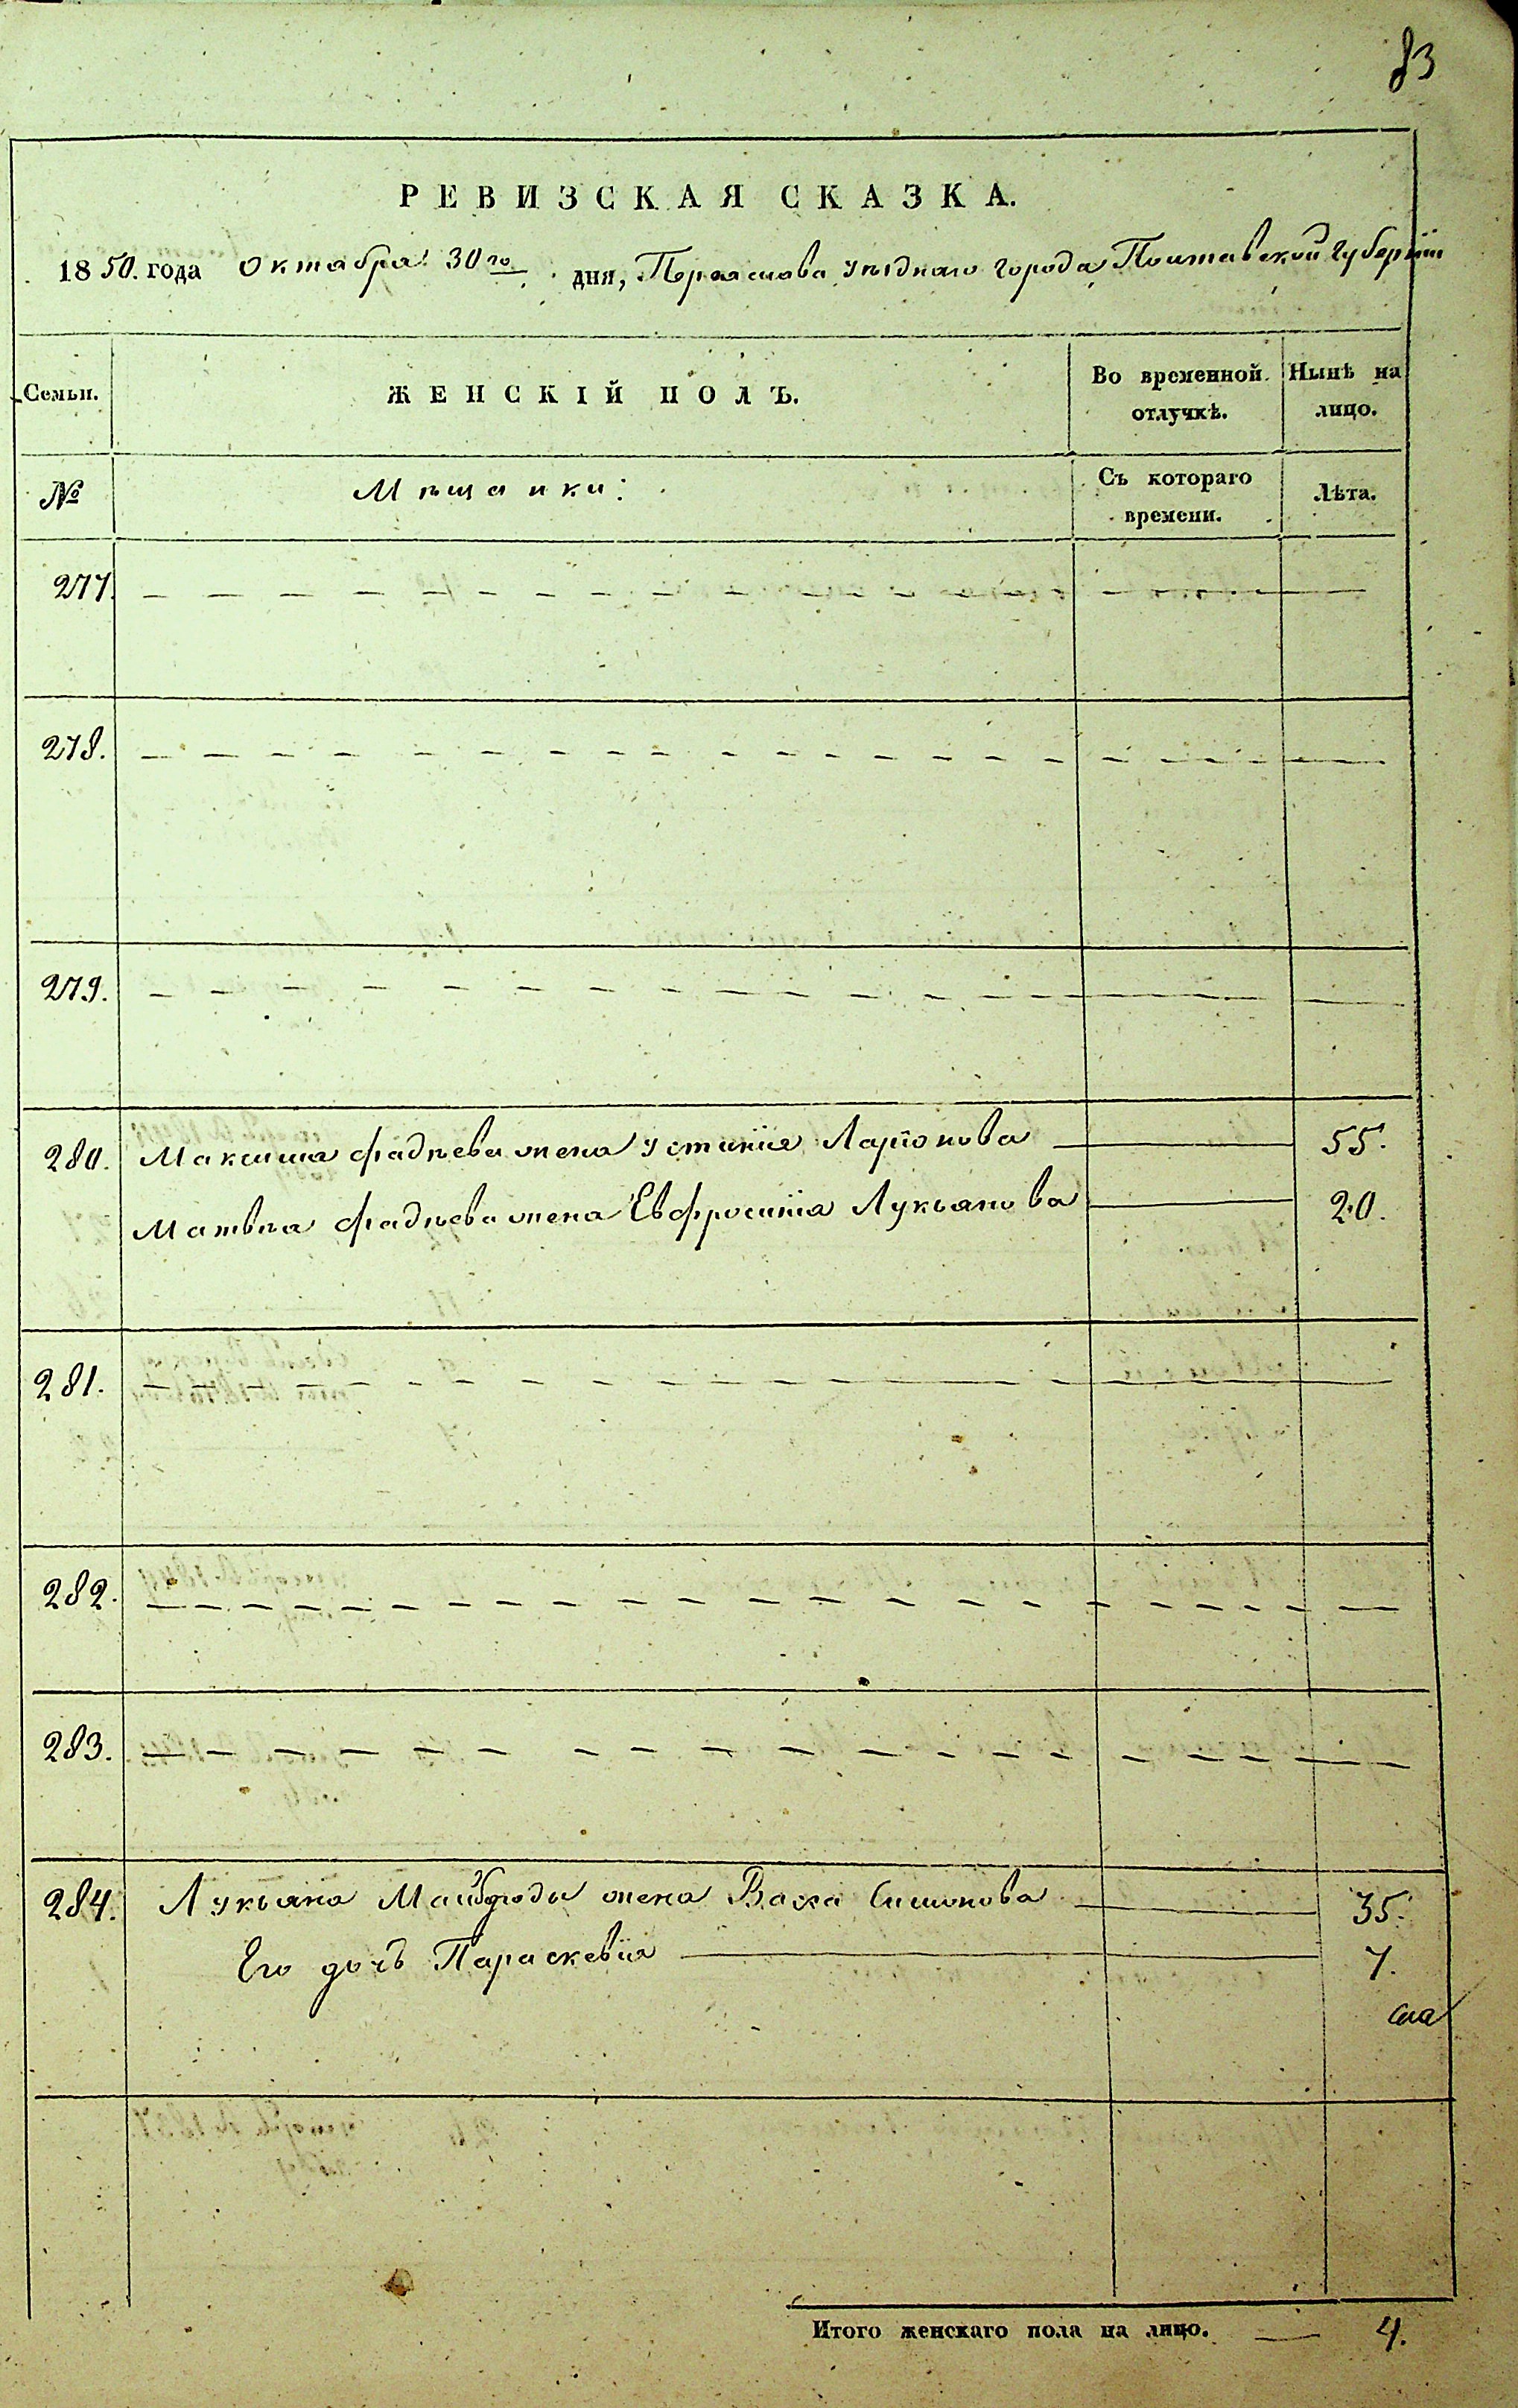 83
РЕВИЗСКАЯ СКАЗКА.
1850. года Октабра 30го дня, Пераяслова уѣзднаго города Полтавской Губерніи
Семьи. ЖЕНСКІЙ ПОЛЪ. Во временной отлучкѣ. Нынѣ на лицо.
№ Мѣщанки: Съ котораго времени. Лѣта.
277.
278.
279.
280. Максима Фадѣева жена Устинія Ларіонова 55.
Матвѣа Фадѣева жена Евфросинія Лукьянова 20.
281.
282.
283.
284. Лукьяна Майброды жена Васса Симонова 35.
Его дочь Параскевія 7.
Итого женскаго пола на лицо. 4.